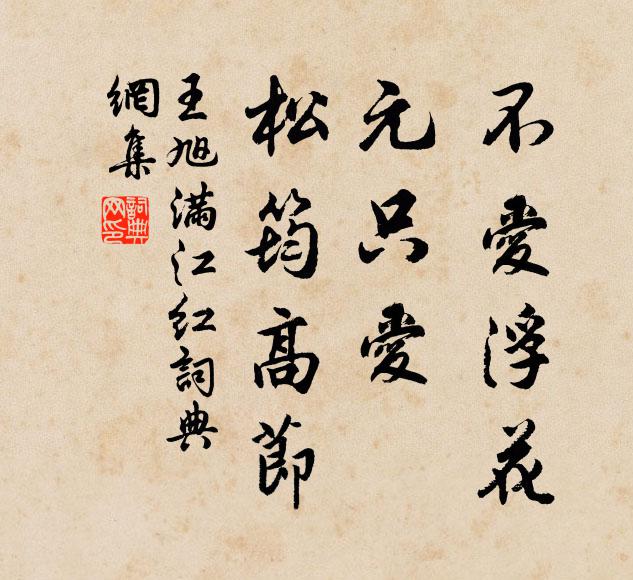 不愛浮花
元只愛
松筠高節
王旭满江红詞典
網集
詞典
网印